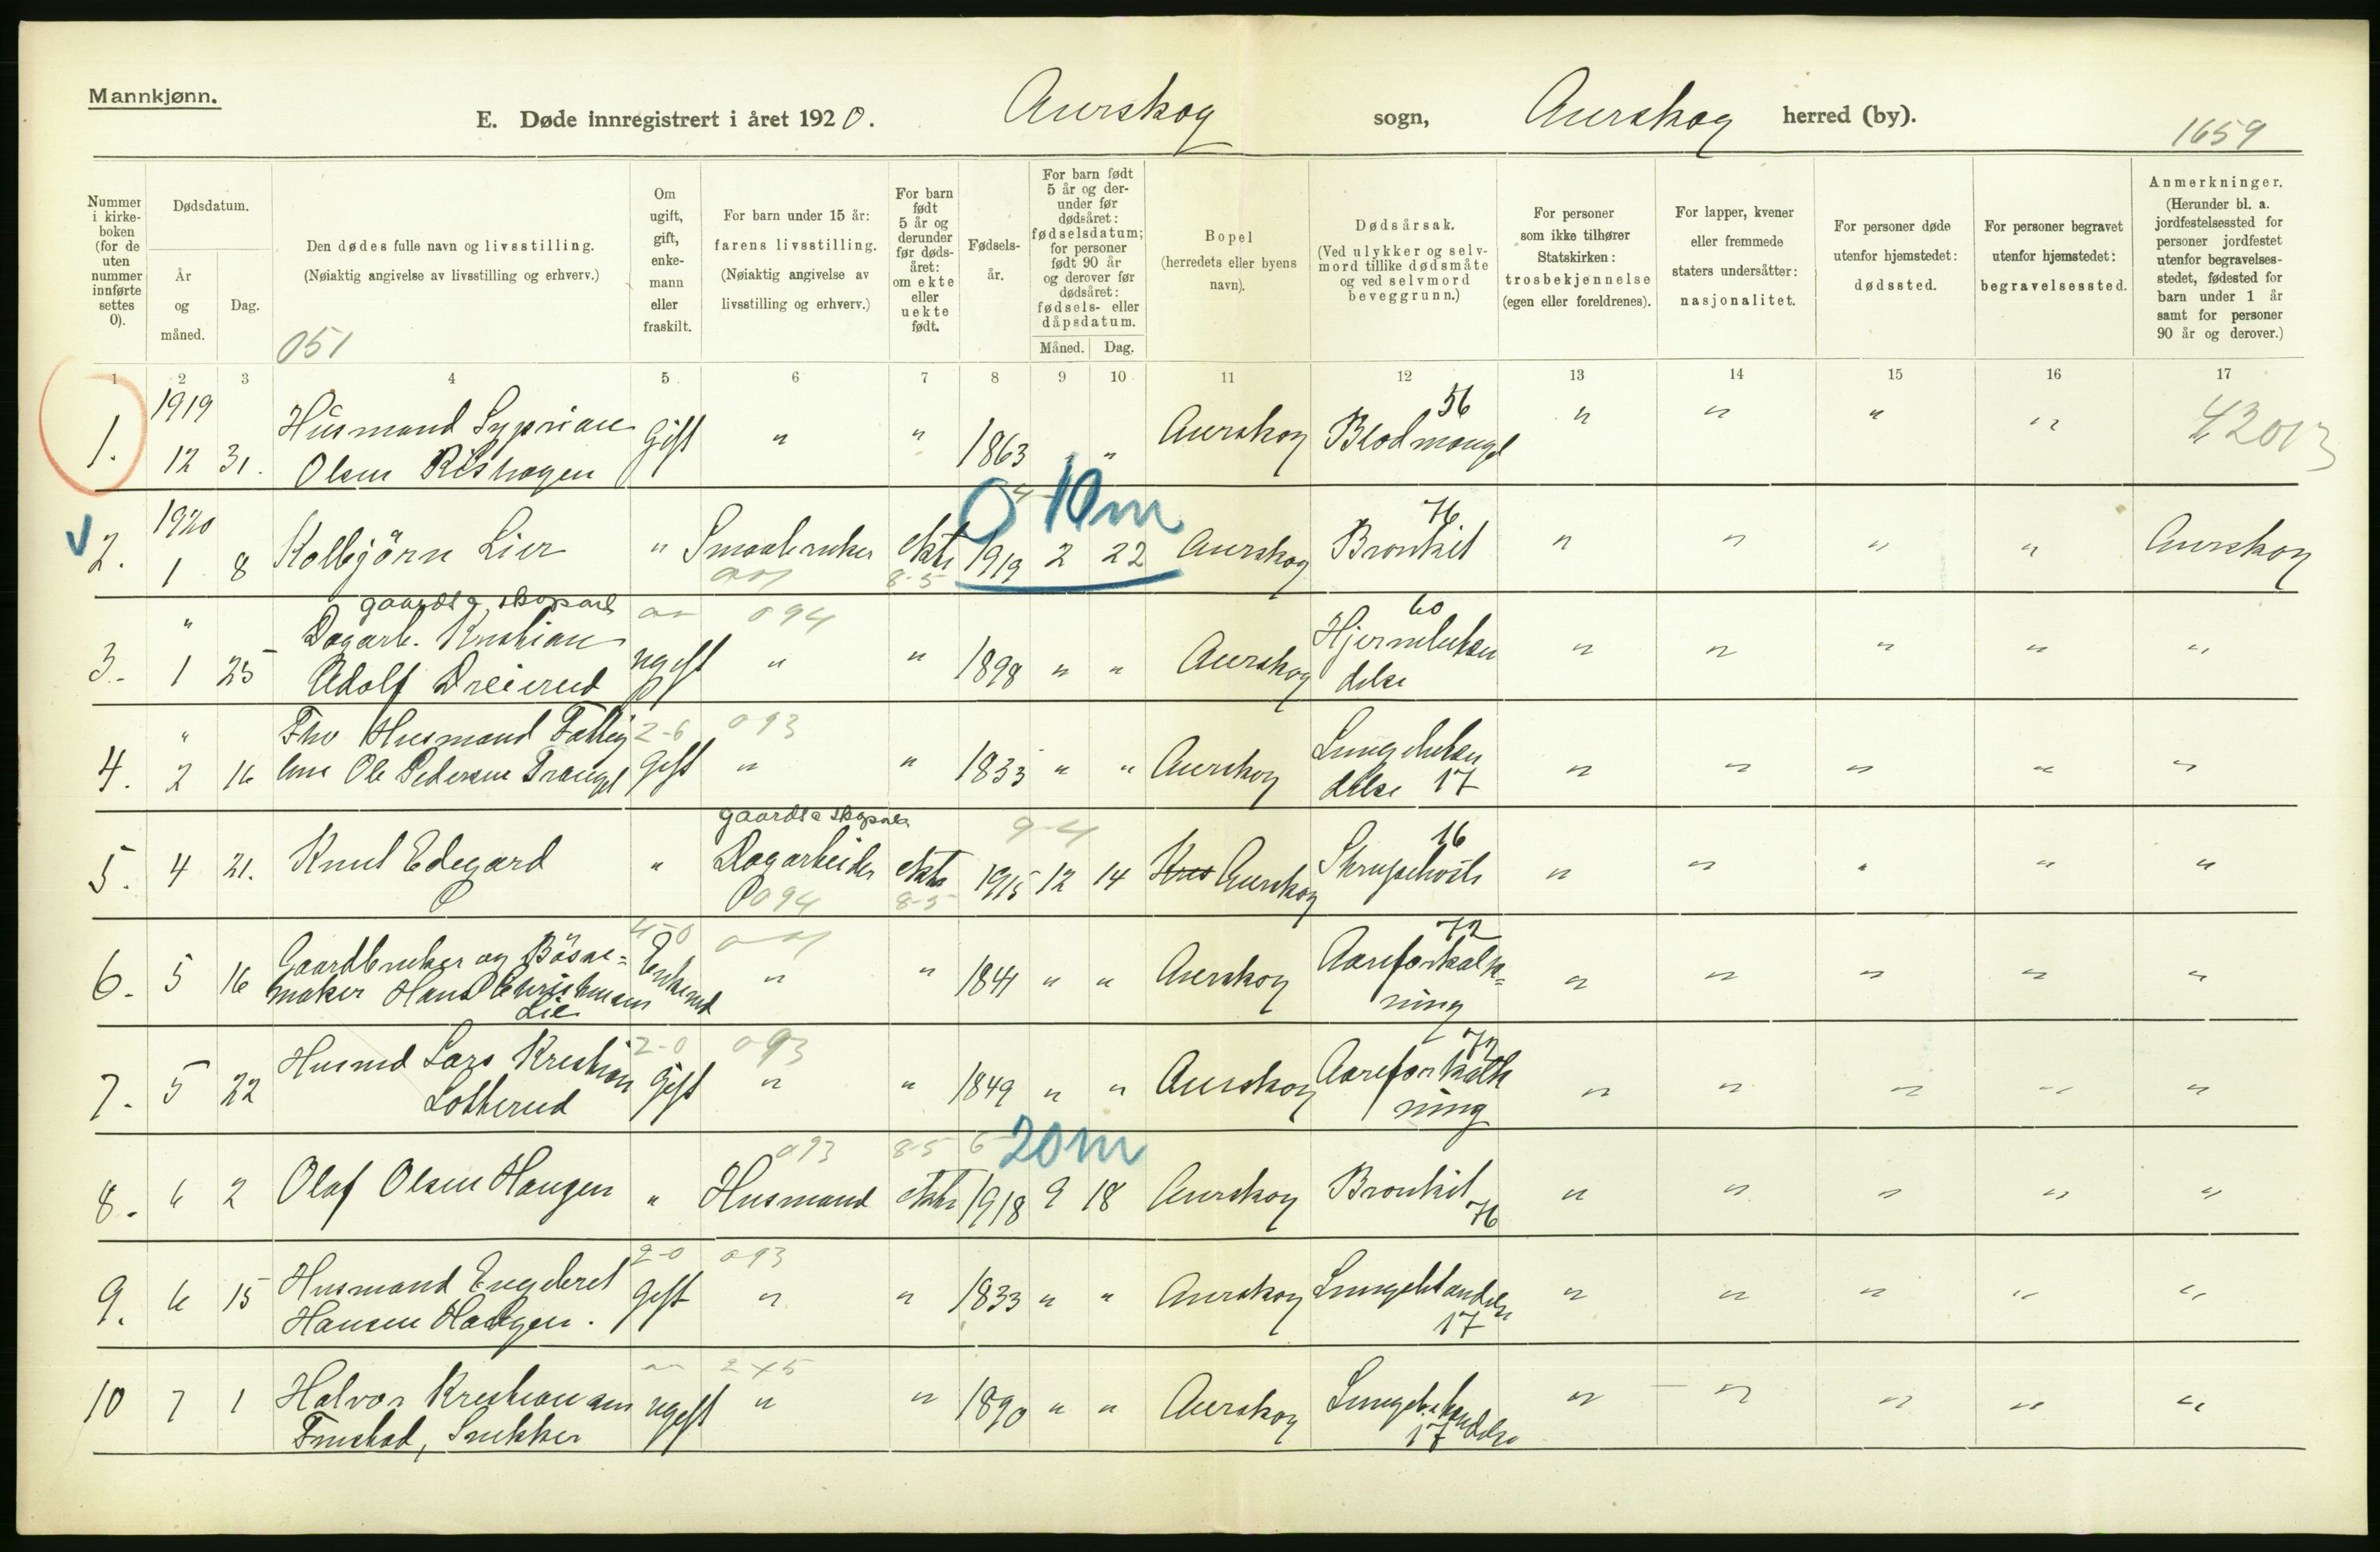 Mannkjønn.
E. Døde innregistrert i året 1920. Aurskog sogn, Aurskog herred (by).
1659
Nummer i kirkeboken (for de uten nummer innførte settes 0).
Dødsdatum.
År og måned.
Dag.
Den dødes fulle navn og livsstilling.
(Nøiaktig angivelse av livsstilling og erhverv.)
051
Om ugift, gift, enkemann eller fraskilt.
For barn under 15 år: farens livsstilling.
(Nøiaktig angivelse av livsstilling og erhverv.)
For barn født 5 år og derunder før dødsåret: om ekte eller uekte født.
Fødselsår.
For barn født 5 år og derunder før dødsåret: fødselsdatum; for personer født 90 år og derover før dødsåret: fødsels- eller dåpsdatum.
Måned. Dag.
Bopel
(herredets eller byens navn).
Dødsårsak.
(Ved ulykker og selvmord tillike dødsmåte og ved selvmord beveggrunn.)
For personer som ikke tilhører Statskirken: trosbekjennelse (egen eller foreldrenes).
For lapper, kvener eller fremmede staters undersåtter: nasjonalitet.
For personer døde utenfor hjemstedet: dødssted.
For personer begravet utenfor hjemstedet: begravelsessted.
Anmerkninger.
(Herunder bl. a. jordfestelsessted for personer jordfestet utenfor begravelsesstedet, fødested for barn under 1 år samt for personer 90 år og derover.)
1 2 3 4 5 6 7 8 9 10 11 12 13 14 15 16 17
1919 56
1. 12 31. Husmand Syprian Gift " " 1863 " " Aurskog Blodmangel " " " "
Olsen Rishagen
0 10m
1920 76
2. 1 8 Kolbjörn Lier " Smaabruker ekte 1919 2 22 Aurskog Bronkit " " " " Aurskog
8-5
gaards & skogsarb 094 60
3. " 1 25 Dagarb. Kristian ugift " " 1898 " " Aurskog Hjernebeten " " " " "
Adolf Dreierud delse
2-6 093
4. " 2 16 Fhv Husmand Fattig Gift " " 1833 " " Aurskog Lungebeten " " " " "
lem Ole Pedersen Trangel delse 17
gaards & skogsarb 9-4 16
5. 4 21. Knut Edegard " Dagarbeider ekte 1915 12 14 Aurskog Strupehoste " " " " "
094 8-5
4-0 72
6. 5 16 Gaardbruker og Bösse= Enkemd " " 1841 " " Aurskog Aareforkalk= " " " " "
maker Hans Christiansen ning
Lie
2-0 093 72
7. 5 22 Husmd Lars Kristian Gift " " 1849 " " Aurskog Aareforkalk " " " " "
Lotterud ning
093 8-5 6 20m
8. 6 2 Olaf Olsen Haugen " Husmand ekte 1918 9 18 Aurskog Bronkit " " " " "
76
2-0 093
9. 6 15 Husmand Engebret Gift " " 1833 " " Aurskog Lungebetændelse " " " " "
Hansen Haugen. 17
2x5
10 7 1 Halvor Kristiansen ugift " " 1890 " " Aurskog Lungebetændelse " " " " "
Snekker 17